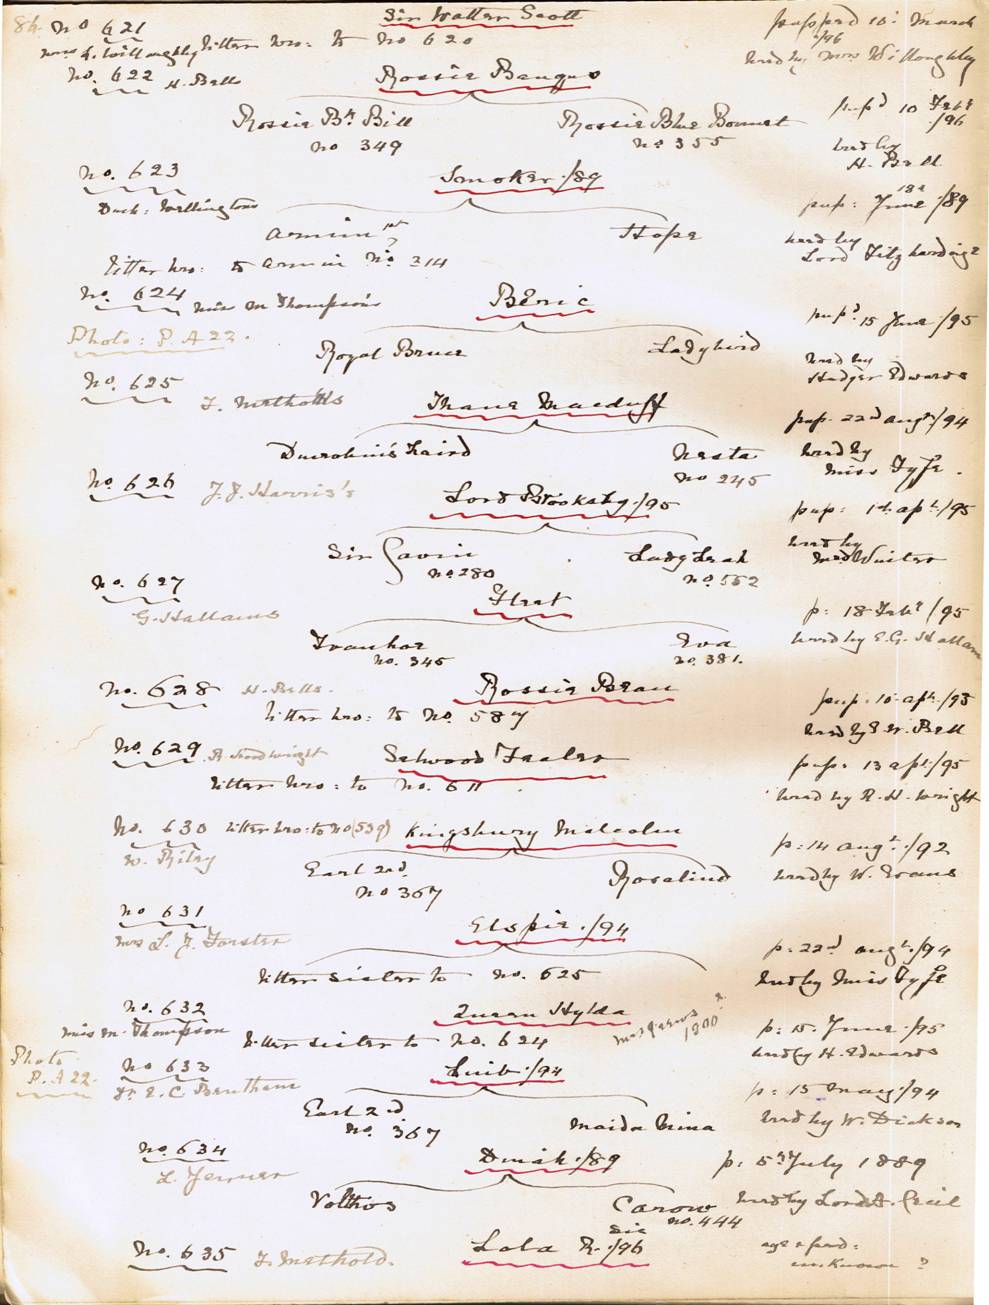 84. No 621 Sir Walter Scott pupped 10: March /96
litter bro: to No 620 bred by Mrs Willoughby
No. 622 H. Bell Rossie Banquo pup'd 10 Feb' /96
Rossie Bk Bill Rossie Blue Bonnet
No 349 No 355 bred by H. Bell
No. 623 Smoker /89 pup: June 18 /89
Duch: Wellingtons
Armin 1st Hope bred by Lord Fitzhardinge
litter bro: to Armin No. 314
No. 624 Miss M Thompson's Beric pup'd 15 June /95
Photo: P. A 22.
Royal Bruce Ladybird bred by Hadger Edwards
No. 625 F. Metholds Thane Macduff pup. 22nd Augt /94
Dunrobin's Laird Nesta bred by Miss Fyfe.
No 245
No 626 J. J. Harris's Lord Brooksby /95 pup: 1st Apl /95
Sir Gavin Lady Leah bred by
No 280 No. 552
No. 627 Fleet p: 18 Feb' /95
G. Hallams
Ivanhoe Eva bred by E. G. Hallam
No. 345 No. 381.
No. 628 H. Bells. Rossie Beau pup. 10 Apl /93
litter bro: to No. 587 bred by H. Bell
No. 629 R. Hood Wright Selwood pup: 13 Apl /95
litter bro: to No. 611 bred by R. H. Wright
No. 630 litter bro: to No (539) Kingsbury Malcolm p: 14 Augt /92
W. Riley
Earl 2nd Rosalind bred by W. Evans
No 367
No 631 Elspie /94 p: 22nd Augt /94
Mrs L. J. Forster
litter sister to No. 625 bred by Miss Fyfe
No. 632 Queen Hylda p: 15. June /95
Miss M. Thompson
litter sister to No. 624 1800? bred by H. Edwards
Photo P. A 22.
No 633 Luib /94 p: 15 May /94
Dr E. C. Bentham
Earl 2nd Maida Nina bred by W: Dickson
No. 367
No. 634 Dinah /89 p: 5th July 1889
L. Jenner
Volthos Carow bred by Lord A. Cecil
sic No. 444
No. 635 F. Methold. Lola R. /96 age & ped: unknown ?